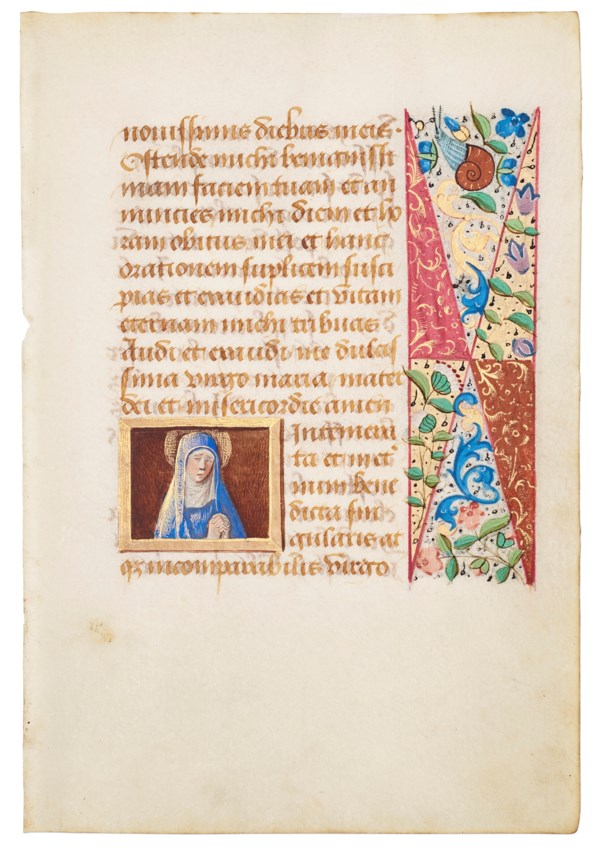 nouissimis diebus meis.
Ostende michi beatissi
mam faciem tuam et an
nuncies michi diem et ho
ram obitus mei et hanc
orationem suplicem susci
pias et exaudias et vitam
eternam michi tribuas
Audi et exaudi me dulcis
sima virgo maria mater
dei et misericordie amen
Intemera
ta et in et
num bene
dicta sin
gularis at
q; incomparabilis virgo